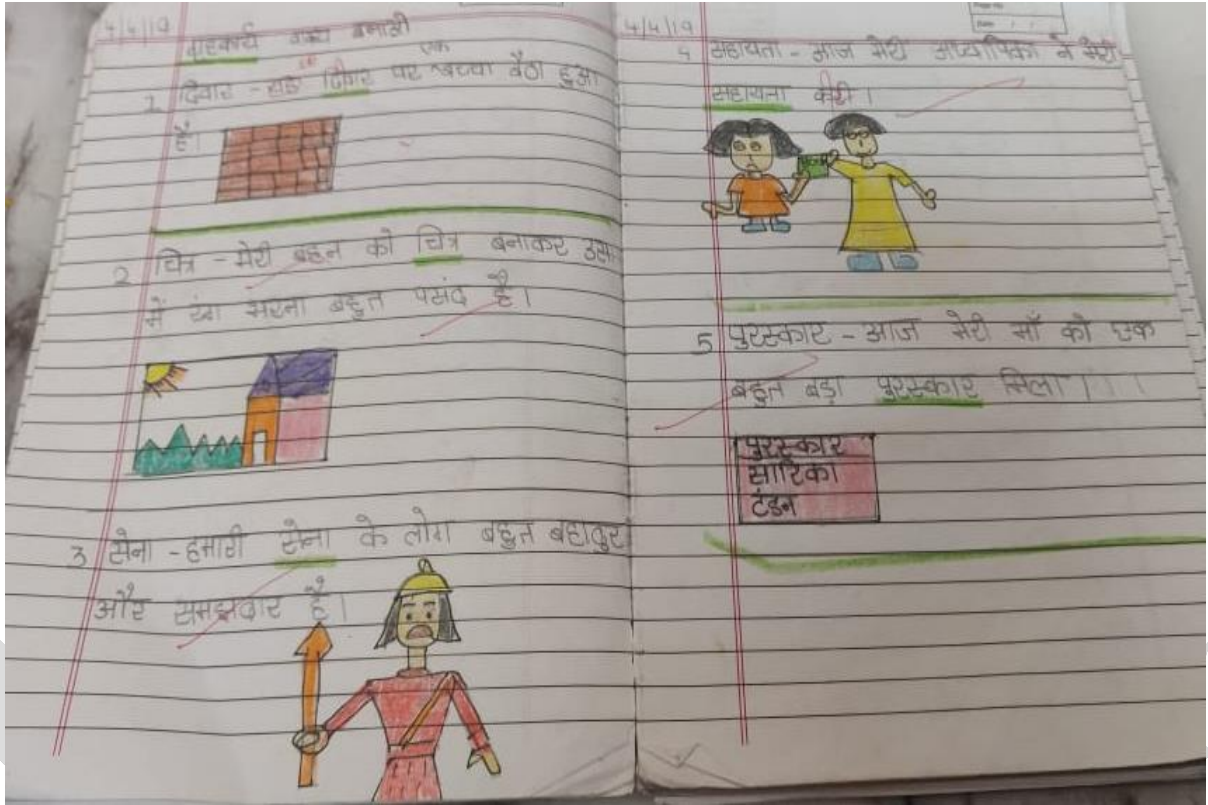 4/4/19
गृहकार्य वाक्य बनाओ
एक
1 दिवार - दिवार पर बच्चा बैठा हुआ
है।
2 चित्र - मेरी बहन को चित्र बनाकर उस
में रंग भरना बहुत पसंद है।
3 सेना - हमारी सेना के लोग बहुत बहादुर
और समझदार है।
4/4/19
4 सहायता - आज मेरी अध्यापिका ने मेरी
सहायता करी।
5 पुरस्कार - आज मेरी माँ को एक
बहुत बड़ा पुरस्कार मिला।
पुरस्कार
सारिका
टंडन